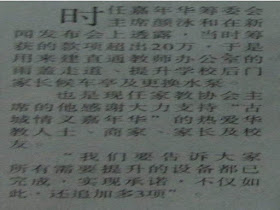 时任嘉年华筹委会
主席颜泳和在新
闻发布会上透露，当时筹
获的款项超出20万，于是
用来建直通教师办公室的
雨盖走道、提升学校后门
家长候车亭及更换水泵。
也是现任家教协会主
席的他感谢大力支持“古
城情义嘉年华”的热爱华
教人士、商家、家长及校
友。
“我们要告诉大家
所有需要提升的设备都已
完成，实现承诺，不仅如
此，还追加多3项”。